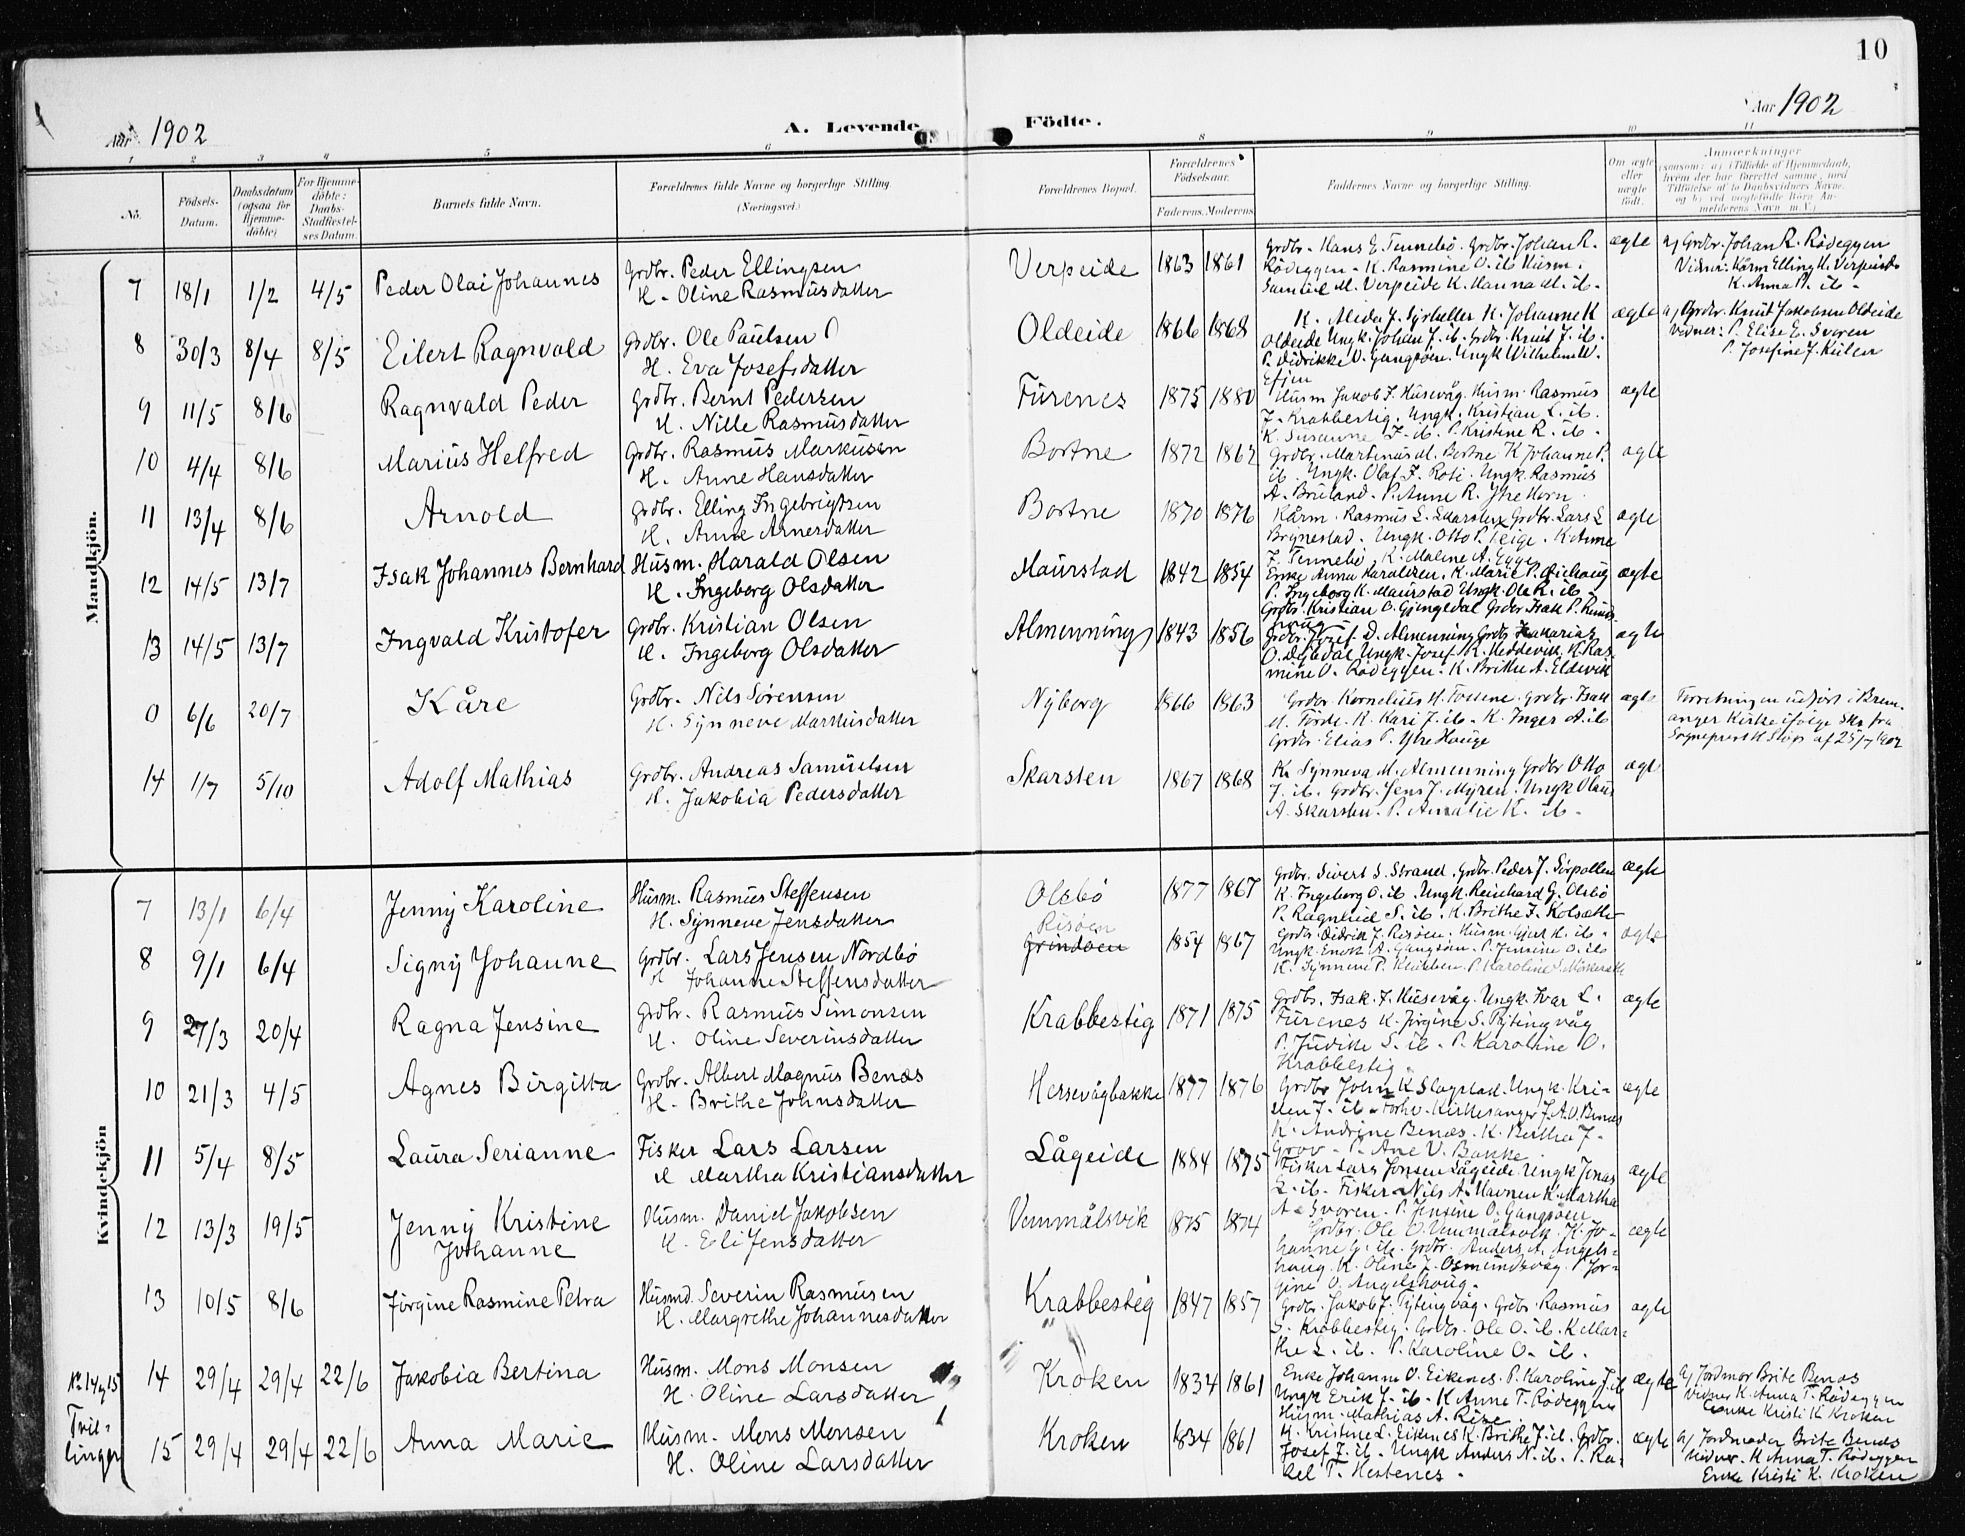 10
Aar 1902
A. Levende Födte.
Aar 1902
1 2 3 4 5 6 8 9 10 11
No.
Födsels-Datum.
Daabsdatum (ogsaa for Hjemme-döbte)
For Hjemme-döbte: Daabs-Stadfæstelses Datum.
Barnets fulde Navn.
Forældrenes fulde Navne og borgerlige Stilling. (Næringsvei.)
Forældrenes Bopæl.
Forældrenes Födselsaar.
Faderens. Moderens.
Faddernes Navne og borgerlige Stilling.
Om ægte eller uægte födt.
Anmærkninger
(saasom: a) i Tilfælde af Hjemmedaab, hvem der har forrettet samme, med Tilföielse af to Daabsvidners Navne, og b) ved uægtefödte Börn Anmelderens Navn m. V.)
Mandkjön.
7 18/1 1/2 4/5 Peder Olai Johannes Grdbr. Peder Ellingsen
H. Oline Rasmusdatter
Verpeide 1863 1861 Grdbr. Hans E. Tennebö. Grdbr. Johan R.
Rödeggen. K. Rasmine O. ib Husm.
Samuel M. Verpeide K. Hanna M. ib.
ægte a) Grdbr. Johan R. Rödeggen
Vidner: Kårm Elling K. Verpeide
K. Anna P. ib.
8 30/3 8/4 8/5 Eilert Ragnvald Grdbr. Ole Paulsen
H. Eva Josefsdatter
Oldeide 1866 1868 K. Alida J. K. Johanne K
Oldeide Ungk. Johan J. ib. Grdbr. Knut J. ib.
P. Didrikke O. Gangsöen. Ungk Wilhelm W.
Efjen
ægte a) Grdbr. Knut Jakobsen Oldeide
vidner: P. Elise E. Svoren
P. Josefine J. Kulen
9 11/5 8/6 Ragnvald Peder Grdbr. Bernt Pedersen
H. Nille Rasmusdatter
Furenes 1875 1880 Husm Jakob J. Husevåg. Husm. Rasmus
J. Krabbestig. Ungk. Kristian L. ib.
K. Susanne J. ib. P. Kristine R. ib.
ægte
10 4/4 8/6 Marius Helfred Grdbr. Rasmus Markusen
H. Anne Hansdatter
Bortne 1872 1862 Grdbr. Martinus M. Bortne K Johanne P.
ib. Ungk. Olaf J. Roti. Ungk Rasmus
A. Bruland. P. Anne R. Ytre Horn.
ægte
11 13/4 8/6 Arnold Grdbr. Elling Ingebrigtsen
H. Anne Arnesdatter
Bortne 1870 1876 Kårm. Rasmus L. Skarsten Grdbr. Lars L
Brynestad. Ungk. Otto P. Leige. K Anne
J. Tennebö, K. Maline A. Egge
ægte
12 14/5 13/7 Isak Johannes Bernhard Husm. Harald Olsen
H. Ingeborg Olsdatter
Maurstad 1842 1854 Enke Anna Haraldsen. K. Marie P.
P. Ingeborg K. Maurstad Ungk. Ole R. ib
Grdbr. Kristian O. Gjengedal Grdbr Isak P.
ægte
13 14/5 13/7 Ingvald Kristofer Grdbr. Kristian Olsen
H. Ingeborg Olsdatter
Almenning 1843 1856 Grdbr. Josef D. Almenning Grdbr Zakarias
O. Degedal Ungk. Josef K. Heddevik. K Ras-
mine O. Rödeggen. K. Brithe A. Eldevik
ægte
0 6/6 20/7 Kåre Grdbr. Nils Sörensen
H. Synneve Marthisdatter
Nyborg 1866 1863 Grdbr Kornelius H. Tossene. Grdbr. Isak
M. Förde. K. Kari J. ib. K. Inger A. ib
Grdbr. Elias P. Ytre Hauge
ægte Forretningen udfört i Brem-
anger Kirke ifölge Skr. fra
Sogneprest af 25/7 1902
14 1/7 5/10 Adolf Mathias Grdbr. Andreas Samuelsen
H. Jakobia Pedersdatter
Skarsten 1867 1868 K. Synneva M. Almenning Grdbr Otto
J. ib. Grdbr. Jens J. Myren. Ungk Olaus
A. Skarsten. P. Amalie K. ib.
ægte
Kvindekjön
7 13/1 6/4 Jenny Karoline Husm. Rasmus Steffensen
H. Synneve Jensdatter
Olsbö 1877 1867 Grdbr. Sivert S. Strand. Grdbr. Peder J. Sörpollen
K. Ingeborg O. ib. Ungk. Reinhard G. Olsbö
P. Ragnhild S. ib. K. Brithe J. Kolsæter
ægte
8 9/1 6/4 Signy Johanne Grdbr. Lars Jensen Nordbö
H Johanne Steffensdatter
Risöen
Grindöen 1854 1867 Grdbr. Didrik J. Risöen. Husm. Gjert K. ib.
Ungk Enok A. Gangsöen. P. Jensine O. ib
K. Synneve P. Klubben. P. Karoline S.
ægte
9 27/3 20/4 Ragna Jensine Grdbr. Rasmus Simonsen
H. Oline Severinsdatter
Krabbestig 1871 1875 Grdbr. Isak. J. Husevåg. Ungk. Ivar L.
Furenes K. Jörgine S. Rytingvåg
P. Judike S. ib. P. Karoline O.
Krabbestig
ægte
10 21/3 4/5 Agnes Birgitta Grdbr. Albert Magnus Benæs
H. Brithe Johnsdatter
Hessevågbakke 1877 1876 Grdbr John K Slagstad. Ungk. Kri-
sten J. ib. Forhv. Kirkesanger J. A. O. Benæs
K. Andrine Benæs. K. Bertha J.
Grov. P. Ane V. Bakke
ægte
11 5/4 8/5 Laura Serianne Fisker Lars Larsen
H Martha Kristiansdatter
Lågeide 1884 1875 Fisker Lars Jonsen Lågeide Ungk Jonas
L. ib. Fisker Nils A. Havnen K. Martha
A. Svoren. P. Jensine O. Gangsöen
ægte
12 13/3 19/5 Jenny Kristine
Johanne Husm. Daniel Jakobsen
H. Eli Jensdatter
Vemmålsvik 1875 1874 Grdbr. Ole O. Vemmålsvik. K. Jo-
hanne G. ib. Grdbr. Anders A. Angels-
haug. K. Oline J. Osmundsvåg. P. Jör-
gine O. Angelshaug.
ægte
13 10/5 8/6 Jörgine Rasmine Petra Husmd. Severin Rasmusen
H. Margrethe Johannesdatter
Krabbestig 1847 1857 Grdbr. Jakob J. Rytingvåg. Grdbr. Rasmus
S. Krabbestig. Grdbr. Ole O. ib. K Mar-
the L. ib. P. Karoline O. ib.
ægte
No 14 og 15
Tvil-
linger
14 29/4 29/4 22/6 Jakobia Bertina Husm. Mons Monsen
H. Oline Larsdatter
Kroken 1834 1861 Enke Johanne O. Eikenes. P. Karoline J. ib
Ungk Erik J. ib. K Anne T. Rödeggen
Husm. Mathias A. Rise
ægte a) Jordmor Brite Benæs
vidner K. Anna T. Rödeggen
Enke Kristi K Kroken
15 29/4 29/4 22/6 Anna Marie Husm. Mons Monsen
H. Oline Larsdatter
Kroken 1834 1861 K. Kristine L. Eikenes K. Brithe J. ib. Grdbr.
Josef J. ib. Ungk Anders N. ib. P. Ra-
kel T. Hestenes.
ægte a) Jordmoder Brite Benæs
Vidner. K Anna T. Rödeggen
Enke Kristi K. Kroken